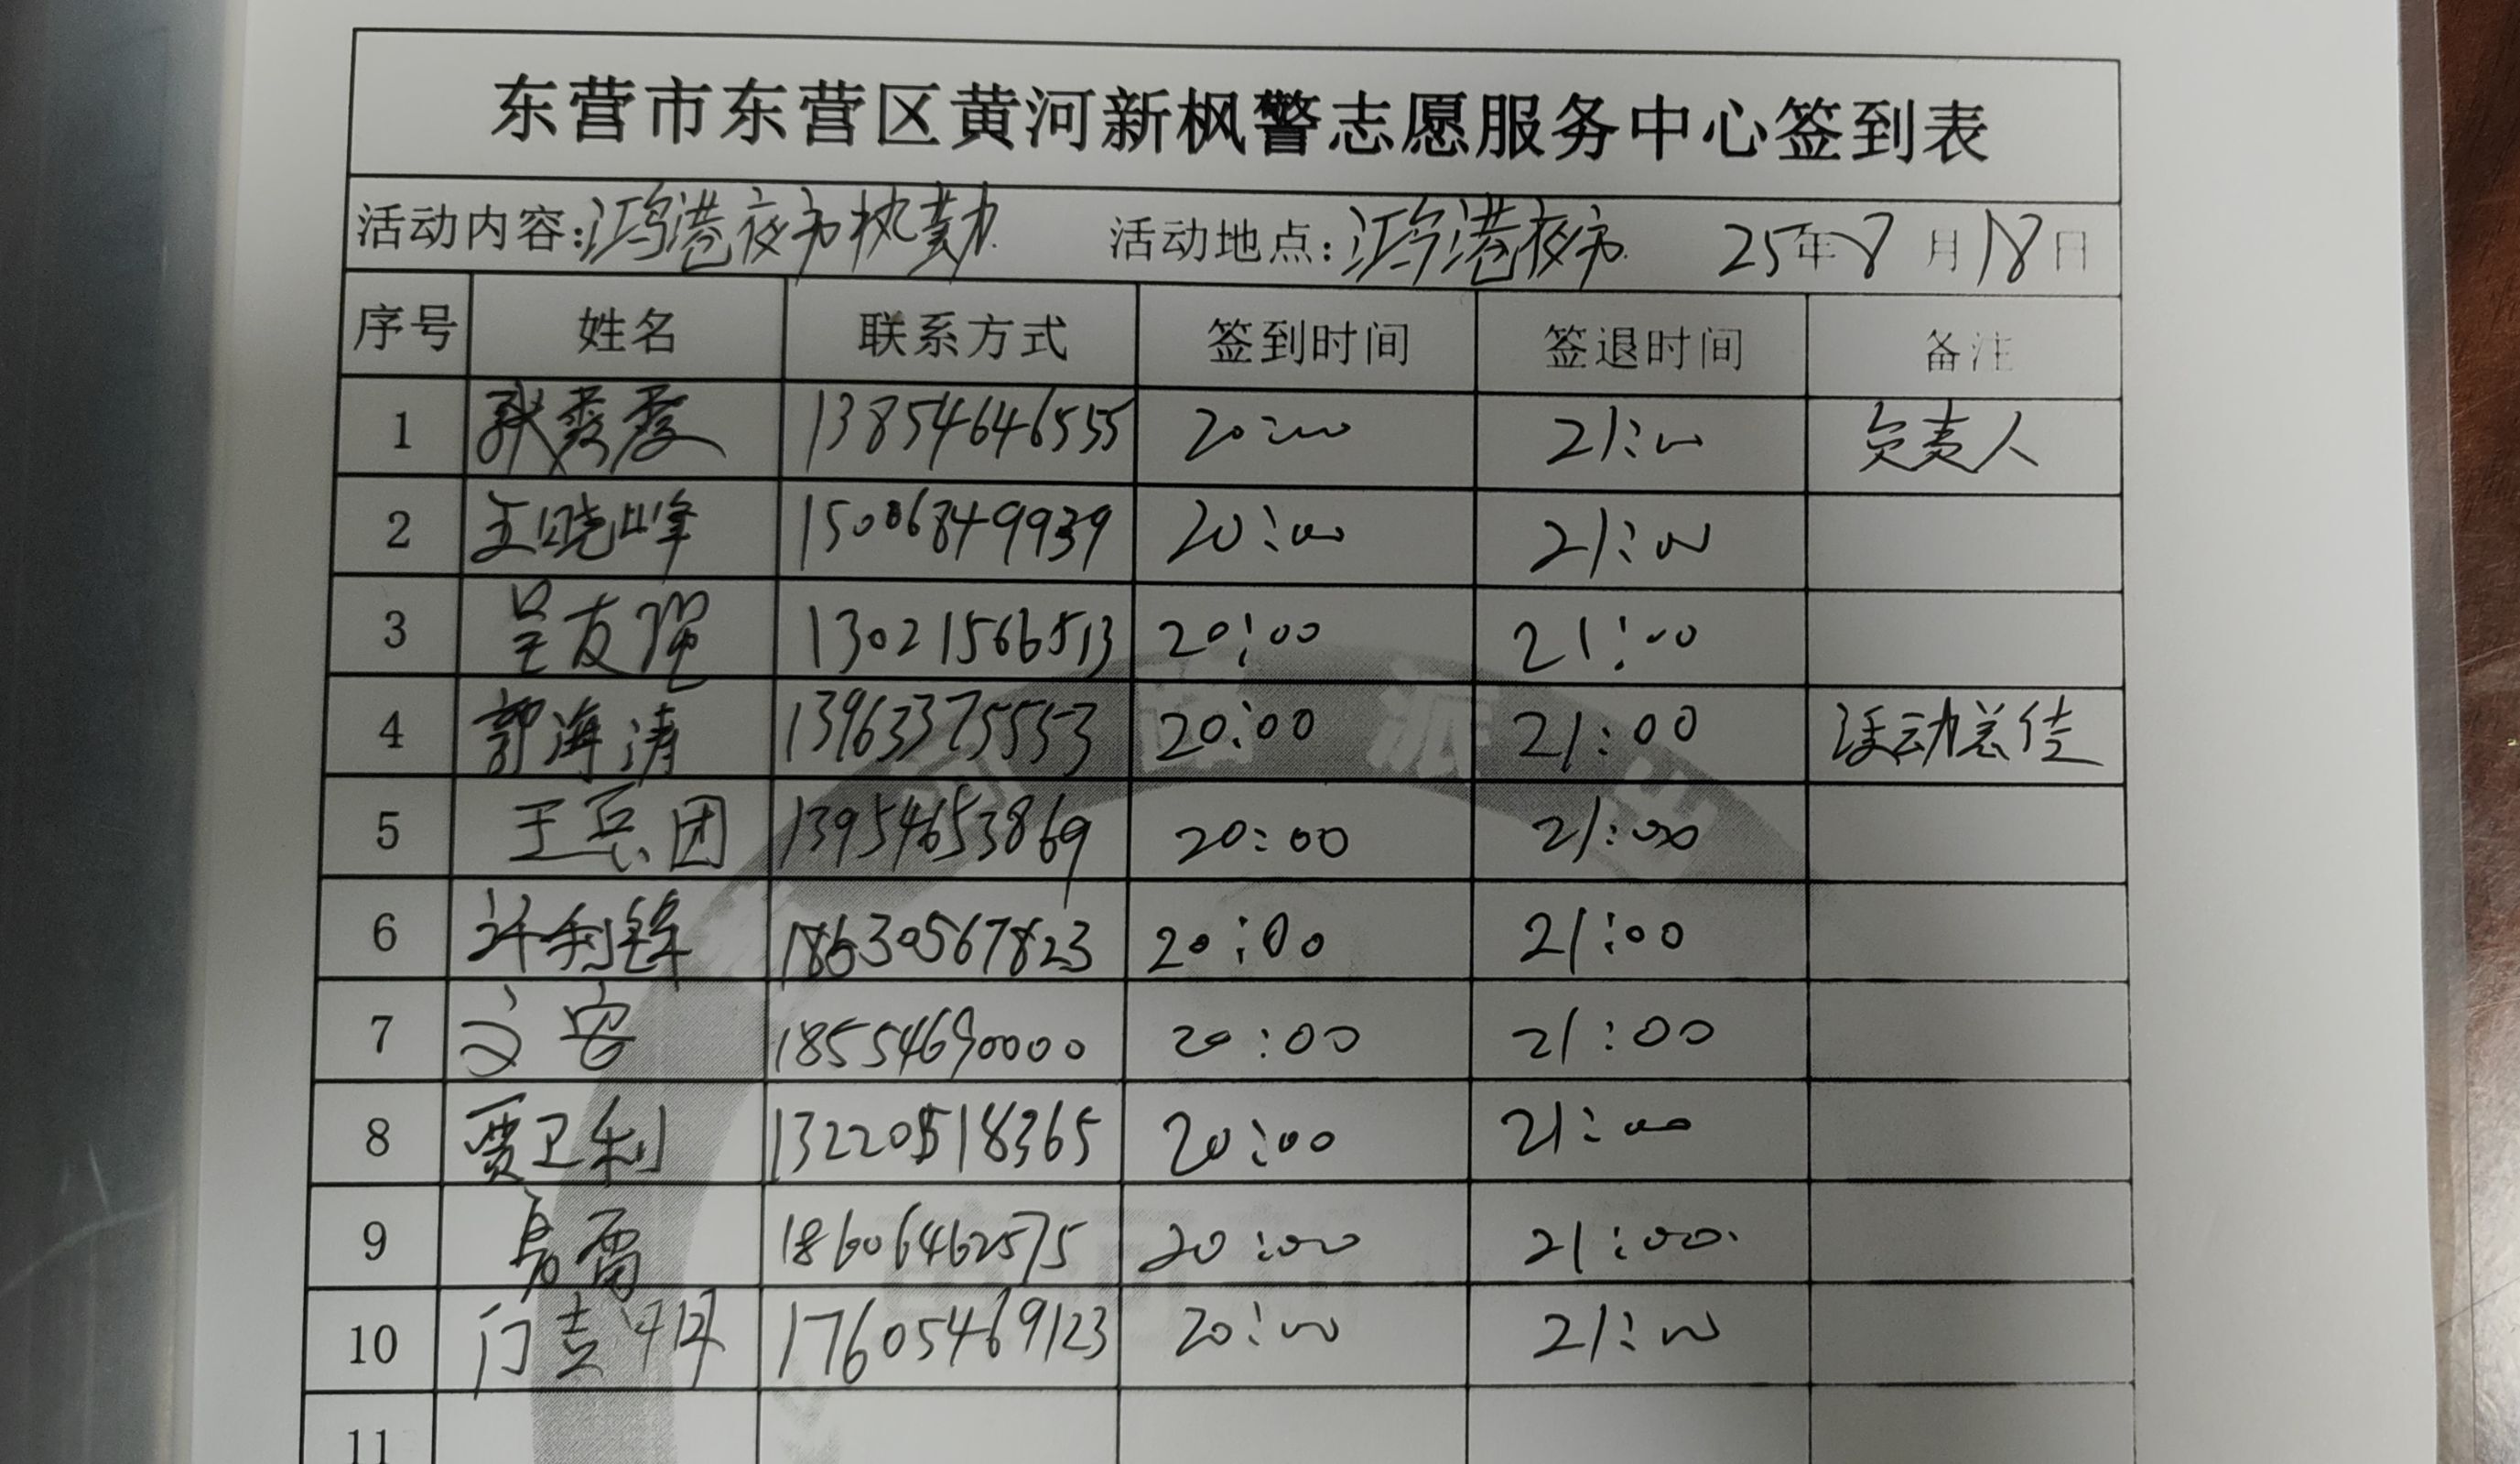 东营市东营区黄河新枫警志愿服务中心签到表
活动内容:鸿港夜市执勤 活动地点:鸿港夜市 25年8月18日
序号 姓名 联系方式 签到时间 签退时间 备注
1 张秀霞 13854646555 20:00 21:00 负责人
2 王晓峰 15006849939 20:00 21:00
3 吴友强 13021566513 20:00 21:00
4 郭海涛 13963375553 20:00 21:00 活动总结
5 王兵团 13954653869 20:00 21:00
6 许利锋 18630567823 20:00 21:00
7 文容 18554690000 20:00 21:00
8 贾卫利 13220518365 20:00 21:00
9 房雷 18606462575 20:00 21:00
10 门吉 17605469123 20:00 21:00
11